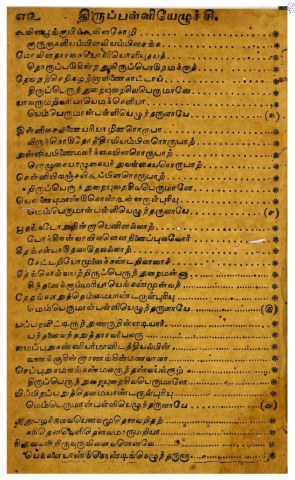 எ௨ திருப்பள்ளியேழுச்சி.
கூவினபூங்குயில்கூவினகோழி
குருகுகளியம்பினவியம்பினசங்க
மோவினதாரகையொளியொளியுதயத்
தொருப்படுகின்றதுவிருப்பொடுநமக்குத்
தேவநற்செறிகழற்றாளிணைகாட்டாய்
திருப்பெருந்துறையுறைசிவபெருமானே
யாவருமறிவரியாயெமக்கெளியா
யெம்பெருமான்பள்ளியெழுந்தருளாயே (௩)
இன்னிசைவீணையரியாழினரொருபா
லிருக்கொடுதோத்திரமியம்பினரொருபாற்
றுன்னியபிணைமலர்க்கையினரொருபாற்
றொழுகையரழுகையர்துவள்கையரொருபாற்
சென்னியிலஞ்சலிகூப்பினரொருபாற்
றிருப்பெருந்துறையுறைசிவபெருமானே
யென்னையுமாண்டுகொண்டின்னருள்புரியு
மெம்பெருமான்பள்ளியெழுந்தருளாயே (௪)
பூதங்கடோறுநின்றாயெனினல்லாற்
போக்கிலன்வரவிலனெனநினைப்புலவோர்
கீதங்கள்பாடுதலாடுதலல்லாற்
கேட்டறியோமுனைக்கண்டறிவாரைச்
சீதங்கொள்வயற்றிருப்பெருந்துறைமன்னா
சிந்தனைக்குமரியாயெங்கண்முன்வந்
தேதங்களறுத்தெம்மையாண்டருள்புரியு
மெம்பெருமான்பள்ளியெழுந்தருளாயே (௫)
பப்பறவீட்டிருந்துணருநின்னடியார்
பந்தனைவந்தறுத்தாரவர்பலரு
மைப்புறுகண்ணியர்மானிடத்தியல்பின்
வணங்குகின்றாரணங்கின்மணவாளா
செப்புறுகமலங்கண்மலருந்தண்வயல்சூழ்
திருப்பெருந்துறையுறைசிவபெருமானே
யிப்பிறப்பறுத்தெமையாண்டருள்புரியு
மெம்பெருமான்பள்ளியெழுந்தருளாயே (௬)
அதுபழச்சுவையெனவமுதெனவறிதற்
கரிதெனவெளிதெனவமரருமறியா
ரிதுவவன்றிருவுருவிவனவனெனவே
யெங்களையாண்டுகொண்டிங்கெழுந்தருளு